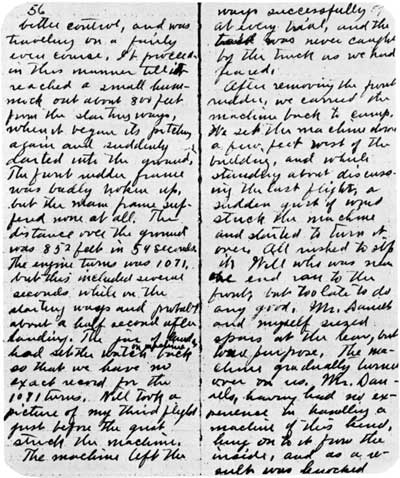 56
better control, and was
traveling on a fairly
even course. It proceeded
in this manner till it
reached a small hum-
mock out about 800 feet
from the starting ways,
when it began its pitching
again and suddenly
darted into the ground.
The front rudder frame
was badly broken up,
but the main frame suf-
fered none at all. The
distance over the ground
was 852 feet in 59 seconds.
The engine turns was 1071,
but this included several
seconds while on the
starting ways and probably
about a half second after
landing. The jar of landing
had set the watch on machine back
so that we have no
exact record for the
1071 turns. Will took a
picture of my third flight
just before the gust
struck the machine.
The machine left the
ways successfully
at every trial, and the
was never caught
by the truck as we had
feared.
After removing the front
rudder, we carried the
machine back to camp.
We set the machine down
a few feet west of the
building, and while
standing about discuss-
ing the last flight, a
sudden gust of wind
struck the machine
and started to turn it
over. All rushed to stop
it. Will who was near
one end ran to the
front, but too late to do
any good. Mr. Daniels
and myself seized
spars at the rear, but
to no purpose. The ma-
chine gradually turned
over on us. Mr. Dan-
iels, having had no ex-
perience in handling a
machine of this kind,
hung on to it from the
inside, and as a re-
sult was knocked